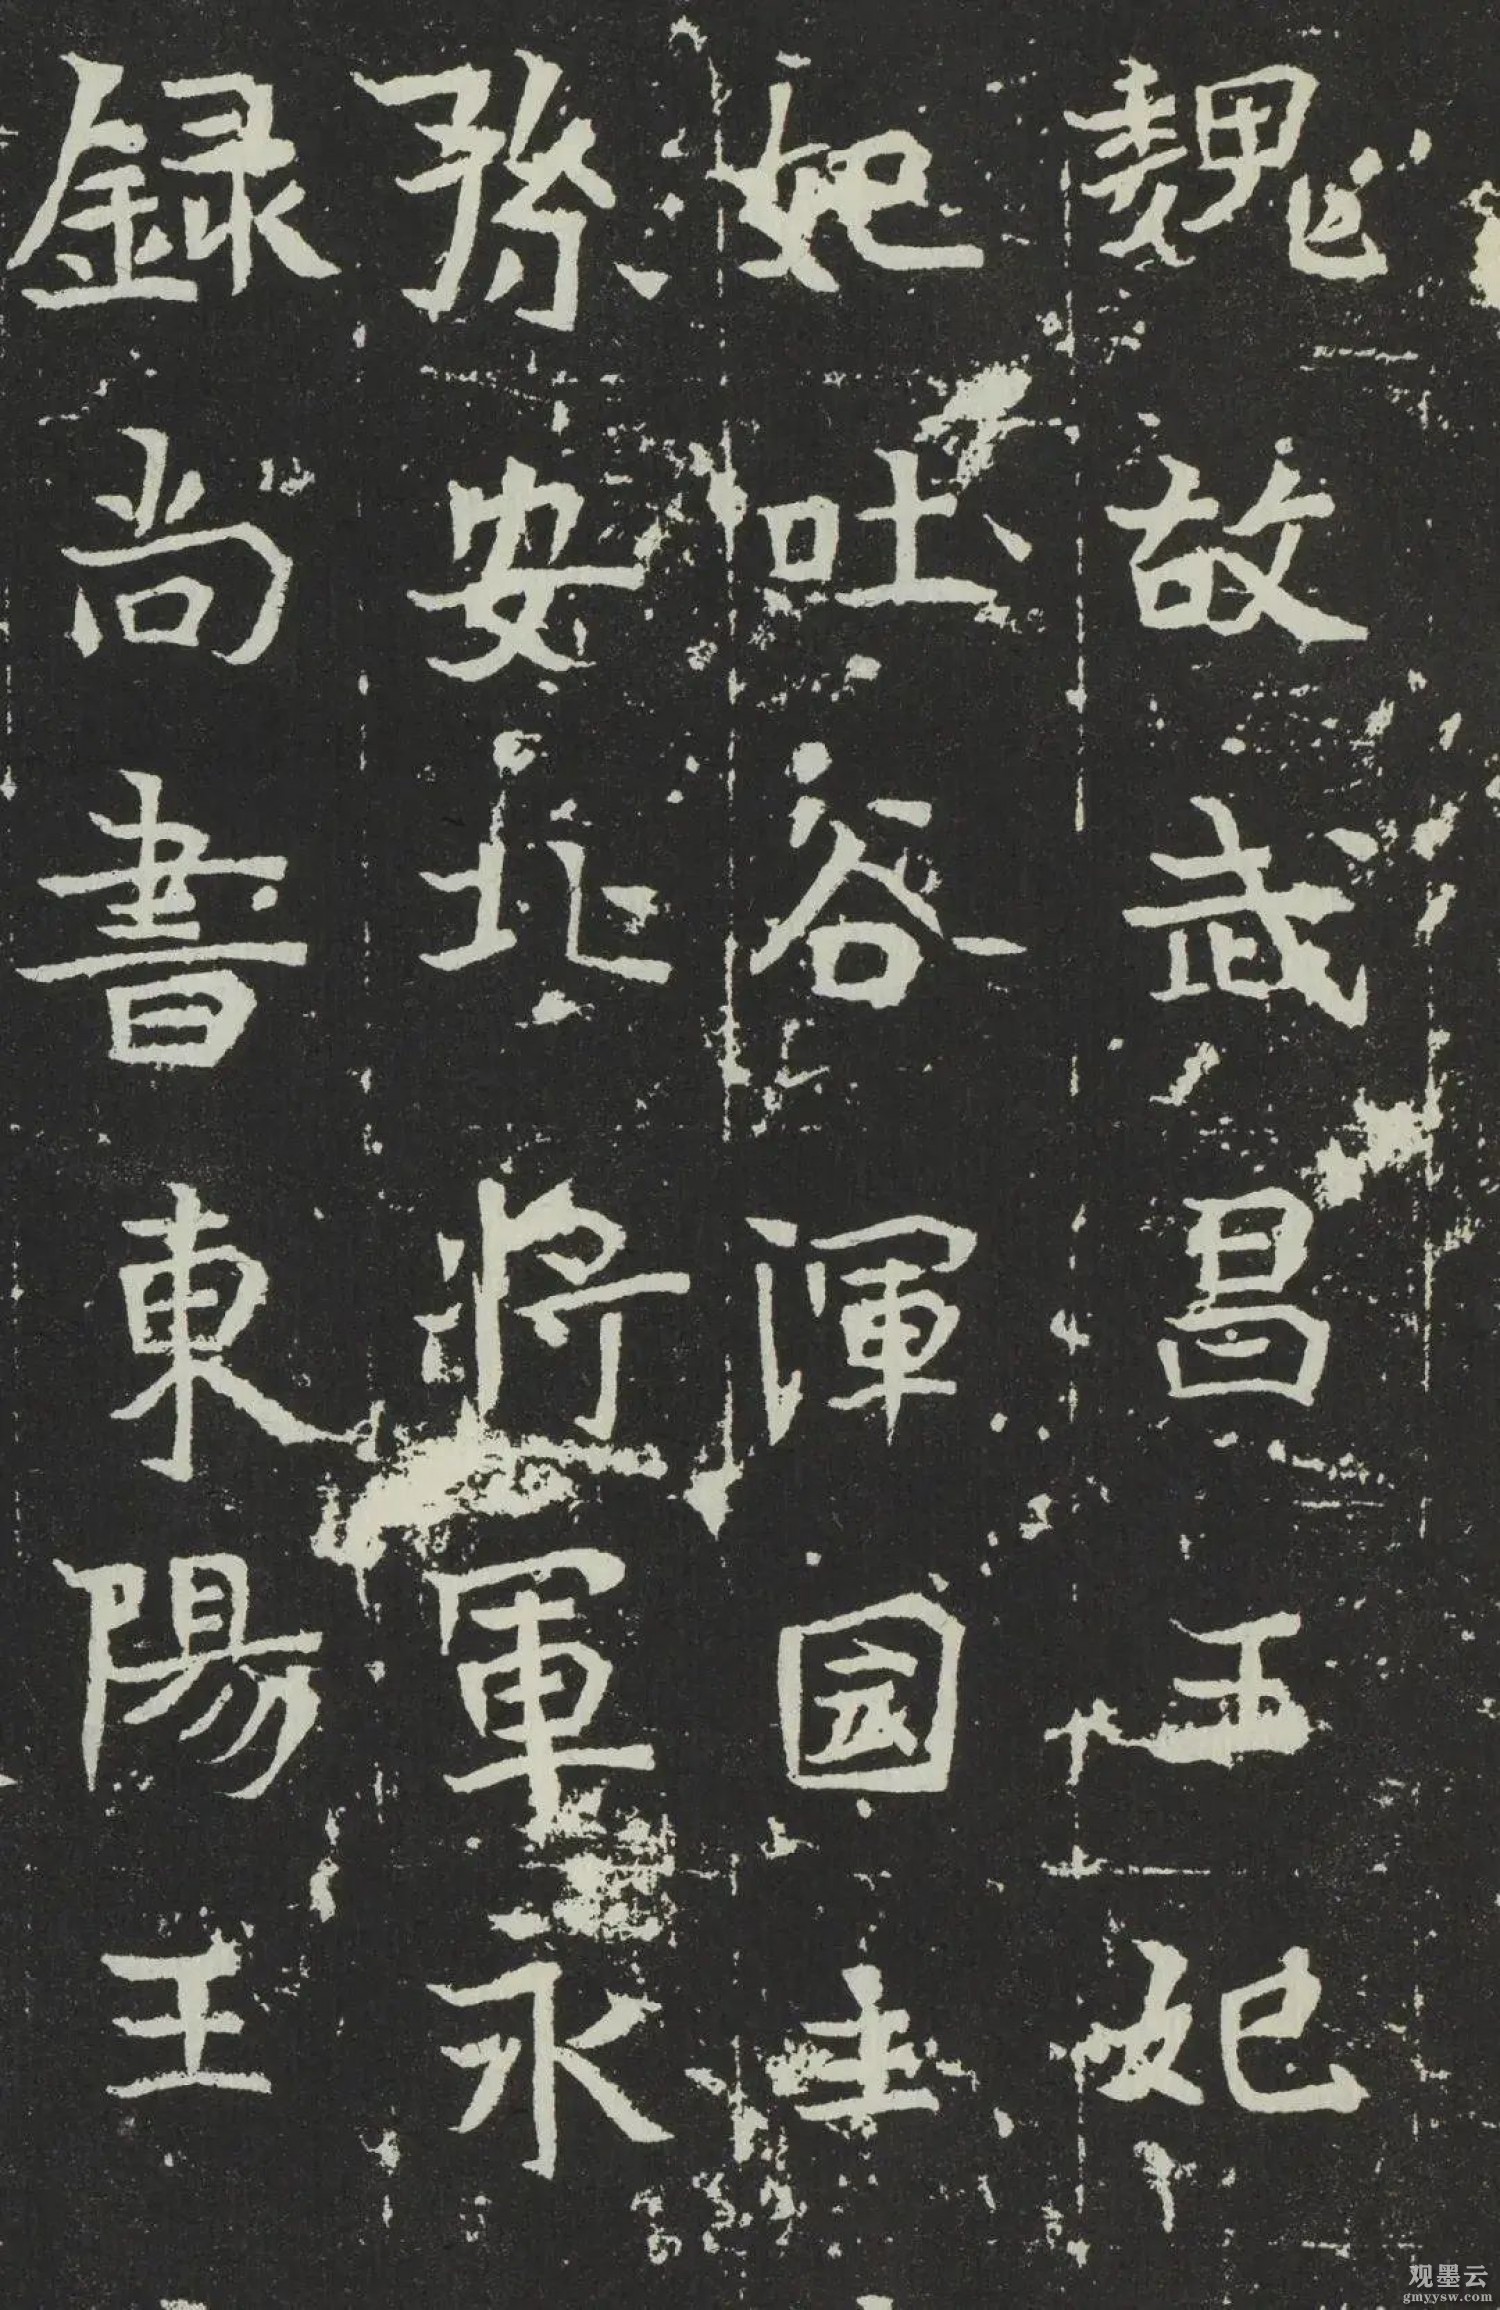 魏故武昌王妃
妃吐谷渾國主
孫安北將軍永
録尚書東陽王
观墨云
gmyysw.com